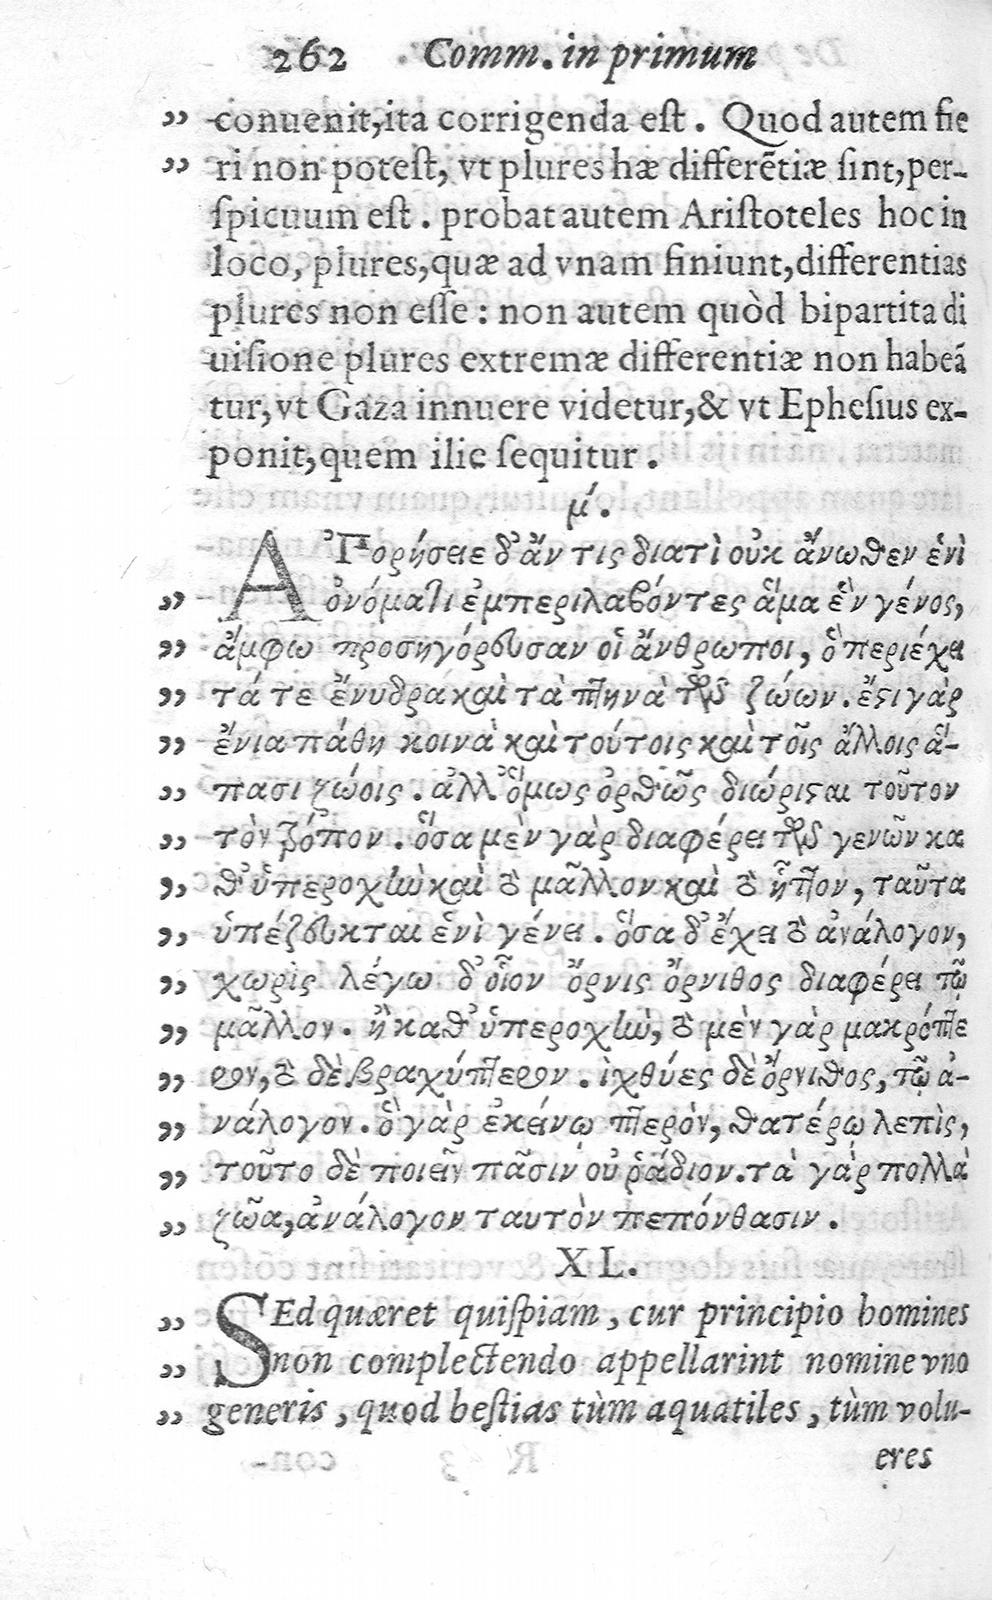 262 Comm. in primum
„ conuenit, ita corrigenda eſt. Quod autem fie
„ ri non poteſt, vt plures hæ differẽtiæ ſint, per-
ſpicuum eſt. probat autem Ariſtoteles hoc in
loco, plures, quæ ad vnam finiunt, differentias
plures non eſſe: non autem quòd bipartita di
uiſione plures extremæ differentiæ non habeã
tur, vt Gaza innuere videtur, & vt Epheſius ex-
ponit, quem illic ſequitur.
μʹ.
ἈΠορήσειε δ' ἄν τις διατὶ οὐκ ἄνωθεν ἑνὶ
„ ὀνόματι ἐμπεριλαβόντες ἅμα ἓν γένος,
„ ἄμφω προσηγόρευσαν οἱ ἄνθρωποι, ὃ περιέχει
„ τά τε ἔνυδρα καὶ τὰ πτηνὰ τῶν ζώων. ἔστι γὰρ
„ ἔνια πάθη κοινὰ καὶ τούτοις καὶ τοῖς ἄλλοις ἅ-
„ πασι ζώοις. ἀλλ' ὅμως ὀρθῶς διώρισται τοῦτον
„ τὸν τρόπον. ὅσα μὲν γὰρ διαφέρει τῶν γενῶν κα
„ θ' ὑπεροχὴν καὶ τὸ μᾶλλον καὶ τὸ ἧττον, ταῦτα
„ ὑπέζευκται ἑνὶ γένει. ὅσα δ' ἔχει τὸ ἀνάλογον,
„ χωρὶς λέγω δ' οἷον ὄρνις ὄρνιθος διαφέρει τῷ
„ μᾶλλον. ἢ καθ' ὑπεροχὴν, τὸ μὲν γὰρ μακρόπτε
„ ρον, τὸ δὲ βραχύπτερον. ἰχθύες δὲ ὄρνιθος, τῷ ἀ-
„ νάλογον. ὃ γὰρ ἐκείνῳ πτερὸν, θατέρῳ λεπὶς,
„ τοῦτο δὲ ποιεῖν πᾶσιν οὐ ῥάδιον. τὰ γὰρ πολλὰ
„ ζῶα, ἀνάλογον ταυτὸν πεπόνθασιν.
XL.
„ SEd quæret quiſpiam, cur principio homines
„ non complectendo appellarint nomine vno
„ generis, quod beſtias tùm aquatiles, tùm volu-
eres